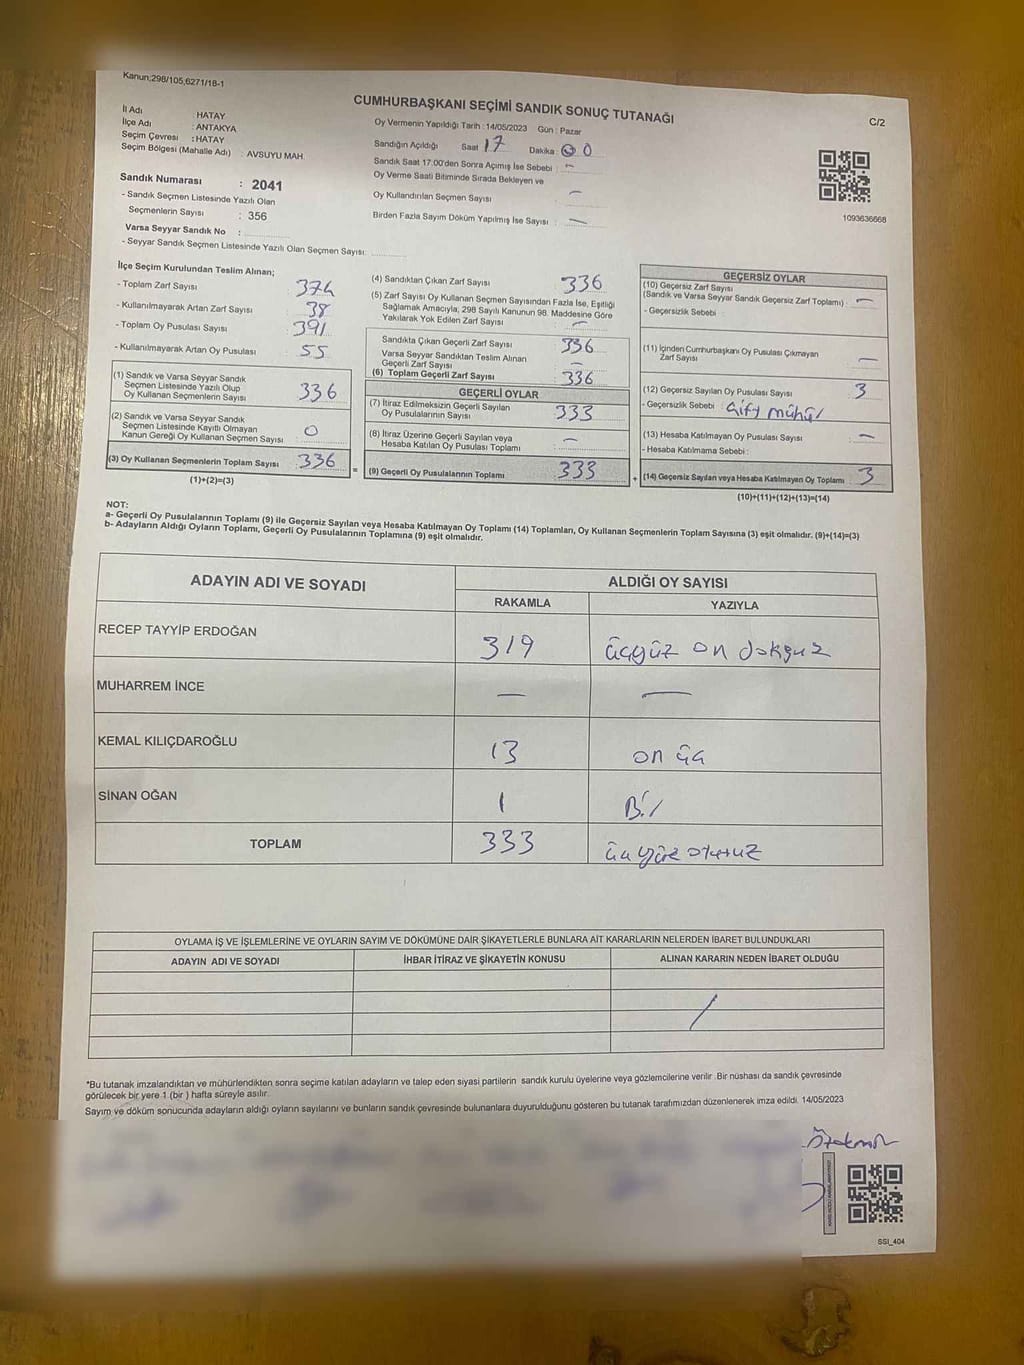 Kanun;298/105,6271/18-1
CUMHURBAŞKANI SEÇİMİ SANDIK SONUÇ TUTANAĞI
C/2
İl Adı : HATAY
İlçe Adı : ANTAKYA
Seçim Çevresi : HATAY
Seçim Bölgesi (Mahalle Adı) : AVSUYU MAH.
Sandık Numarası : 2041
- Sandık Seçmen Listesinde Yazılı Olan
Seçmenlerin Sayısı : 356
Varsa Seyyar Sandık No :
- Seyyar Sandık Seçmen Listesinde Yazılı Olan Seçmen Sayısı:
Oy Vermenin Yapıldığı Tarih : 14/05/2023 Gün : Pazar
Sandığın Açıldığı Saat 17 Dakika : 0
Sandık Saat 17:00'den Sonra Açımış İse Sebebi : -
Oy Verme Saati Bitiminde Sırada Bekleyen ve
Oy Kullandırılan Seçmen Sayısı -
Birden Fazla Sayım Döküm Yapılmış İse Sayısı : -
1093636668
İlçe Seçim Kurulundan Teslim Alınan;
- Toplam Zarf Sayısı 374
- Kullanılmayarak Artan Zarf Sayısı 38
- Toplam Oy Pusulası Sayısı 391
- Kullanılmayarak Artan Oy Pusulası 55
(1) Sandık ve Varsa Seyyar Sandık
Seçmen Listesinde Yazılı Olup
Oy Kullanan Seçmenlerin Sayısı 336
(2) Sandık ve Varsa Seyyar Sandık
Seçmen Listesinde Kayıtlı Olmayan
Kanun Gereği Oy Kullanan Seçmen Sayısı 0
(3) Oy Kullanan Seçmenlerin Toplam Sayısı 336
(1)+(2)=(3)
(4) Sandıktan Çıkan Zarf Sayısı 336
(5) Zarf Sayısı Oy Kullanan Seçmen Sayısından Fazla İse, Eşitliği
Sağlamak Amacıyla, 298 Sayılı Kanunun 98. Maddesine Göre
Yakılarak Yok Edilen Zarf Sayısı -
Sandıkta Çıkan Geçerli Zarf Sayısı 336
Varsa Seyyar Sandıktan Teslim Alınan
Geçerli Zarf Sayısı -
(6) Toplam Geçerli Zarf Sayısı 336
GEÇERLİ OYLAR
(7) İtiraz Edilmeksizin Geçerli Sayılan
Oy Pusulalarının Sayısı 333
(8) İtiraz Üzerine Geçerli Sayılan veya
Hesaba Katılan Oy Pusulası Toplamı -
= (9) Geçerli Oy Pusulalarının Toplamı 333 +
GEÇERSİZ OYLAR
(10) Geçersiz Zarf Sayısı
(Sandık ve Varsa Seyyar Sandık Geçersiz Zarf Toplamı) : -
- Geçersizlik Sebebi :
(11) İçinden Cumhurbaşkanı Oy Pusulası Çıkmayan
Zarf Sayısı -
(12) Geçersiz Sayılan Oy Pusulası Sayısı 3
- Geçersizlik Sebebi : Çift mühür
(13) Hesaba Katılmayan Oy Pusulası Sayısı -
- Hesaba Katılmama Sebebi :
(14) Geçersiz Sayılan veya Hesaba Katılmayan Oy Toplamı 3
(10)+(11)+(12)+(13)=(14)
NOT:
a- Geçerli Oy Pusulalarının Toplamı (9) ile Geçersiz Sayılan veya Hesaba Katılmayan Oy Toplamı (14) Toplamları, Oy Kullanan Seçmenlerin Toplam Sayısına (3) eşit olmalıdır. (9)+(14)=(3)
b- Adayların Aldığı Oyların Toplamı, Geçerli Oy Pusulalarının Toplamına (9) eşit olmalıdır.
ADAYIN ADI VE SOYADI ALDIĞI OY SAYISI
RAKAMLA YAZIYLA
RECEP TAYYİP ERDOĞAN 319 üçyüz on dokquz
MUHARREM İNCE - -
KEMAL KILIÇDAROĞLU 13 on üç
SİNAN OĞAN 1 Bir
TOPLAM 333 üçyüz otuz
OYLAMA İŞ VE İŞLEMLERİNE VE OYLARIN SAYIM VE DÖKÜMÜNE DAİR ŞİKAYETLERLE BUNLARA AİT KARARLARIN NELERDEN İBARET BULUNDUKLARI
ADAYIN ADI VE SOYADI İHBAR İTİRAZ VE ŞİKAYETİN KONUSU ALINAN KARARIN NEDEN İBARET OLDUĞU
/
*Bu tutanak imzalandıktan ve mühürlendikten sonra seçime katılan adayların ve talep eden siyasi partilerin sandık kurulu üyelerine veya gözlemcilerine verilir .Bir nüshası da sandık çevresinde
görülecek bir yere 1 (bir ) hafta süreyle asılır.
Sayım ve döküm sonucunda adayların aldığı oyların sayılarını ve bunların sandık çevresinde bulunanlara duyurulduğunu gösteren bu tutanak tarafımızdan düzenlenerek imza edildi. 14/05/2023
SSI_404